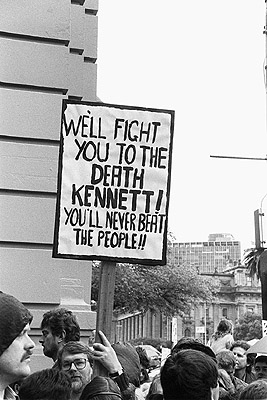 WE'LL FIGHT
YOU TO THE
DEATH
KENNETT!
YOU'LL NEVER BEAT
THE PEOPLE!!